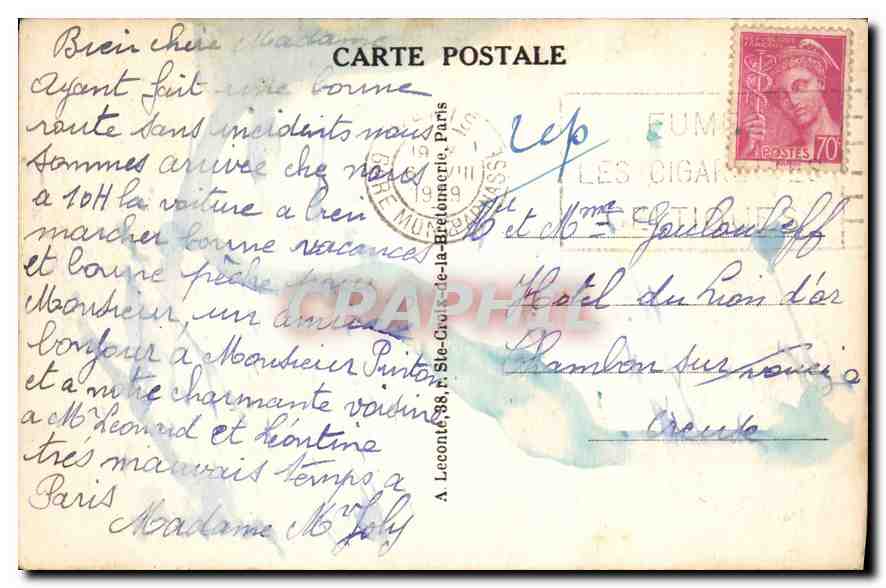 CARTE POSTALE
Bien chère Madame
Ayant fait une bonne
route sans incidents nous
sommes arrivée che nous
a 10H la voiture a bien
marcher bonne vacances
et bonne pêche pour
Monsieur, un amical
bonjour à Monsieur Pinton
et a notre charmante voisine
a Mr Leonard et Léontine
très mauvais temps a
Paris
Madame Mr Joly
A. Leconte, 38, r. Ste-Croix-de-la-Bretonnerie, Paris
rep
GARE MONTPARNASSE
1939
FUMEZ
LES CIGARETTES
POSTES 70c
Mr et Mme Gouloubeff
Hotel du Lion d'or
Chambon sur
Creuse
CPAPHIL